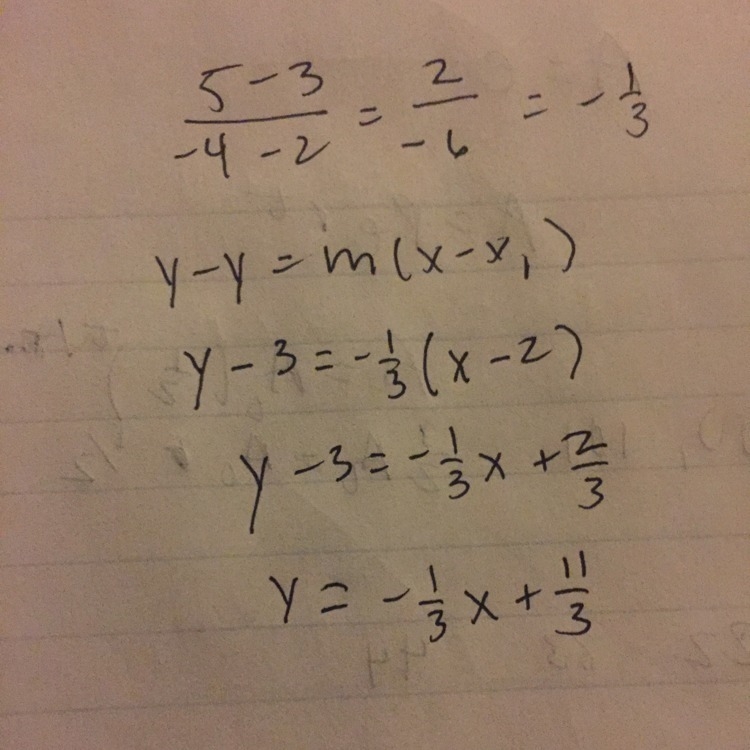 5-3/-4-2 = 2/-6 = -1/3
y-y = m(x-x₁)
y-3 = -1/3(x-2)
y-3 = -1/3x + 2/3
y = -1/3x + 11/3